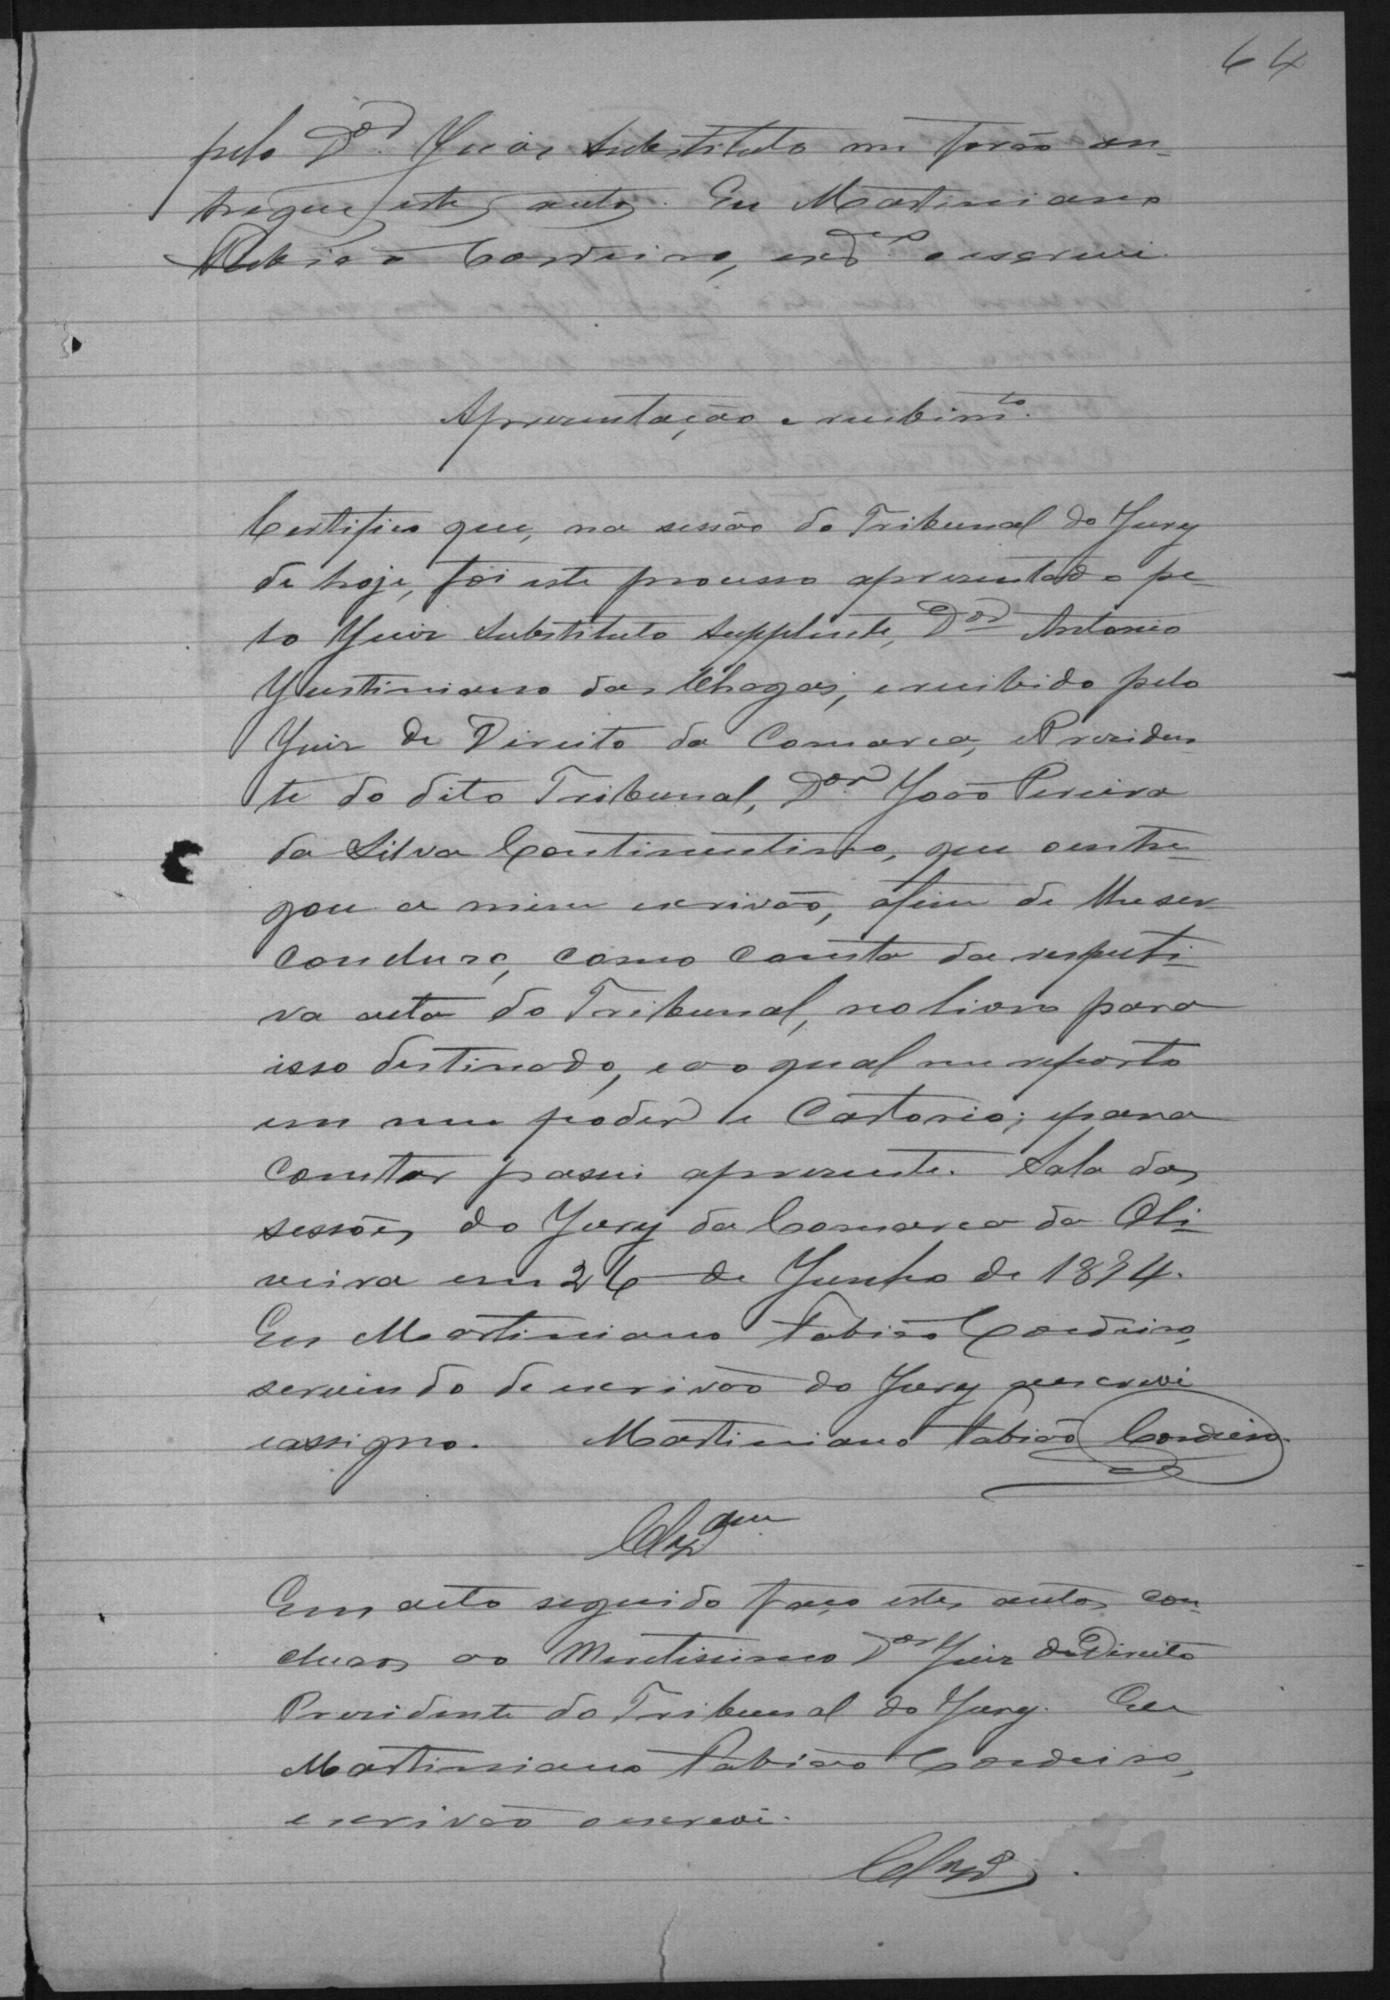 64
pelo Dor. Juiz Substituto me forão en-
tregues estes autos. Eu Martiniano
Fabião Cordeiro, escrão. o escrevi.
Apresentação e recebimto.
Certifico que, na sessão do Tribunal do Jury
de hoje, foi este processo apresentado pe-
lo Juiz Substituto Supplente, Dor Antonio
Justiniano das Chagas, e recebido pelo
Juiz de Direito da Comarca, e Presiden-
te do dito Tribunal, Dor. João Pereira
da Silva Continentino, que o entre-
gou a mim escrivão, afim de lhe ser
concluso, como consta da respecti-
va acta do Tribunal, no livro para
isso destinado, e ao qual me reporto
em meu poder e Cartorio; e para
constar passei a presente. Sala das
sessões do Jury da Comarca da Oli-
veira em 26 de Junho de 1894.
Eu Martiniano Fabião Cordeiro,
servindo de escrivão do Jury q escrevi
e assigno. Martiniano Fabião Cordeiro.
Clsam
Em acto seguido faço estes autos con-
clusos ao Meritissimo Dor Juiz de Direito
Presidente do Tribunal do Jury. Eu
Martiniano Fabião Cordeiro,
escrivão o escrevi.
Clsos